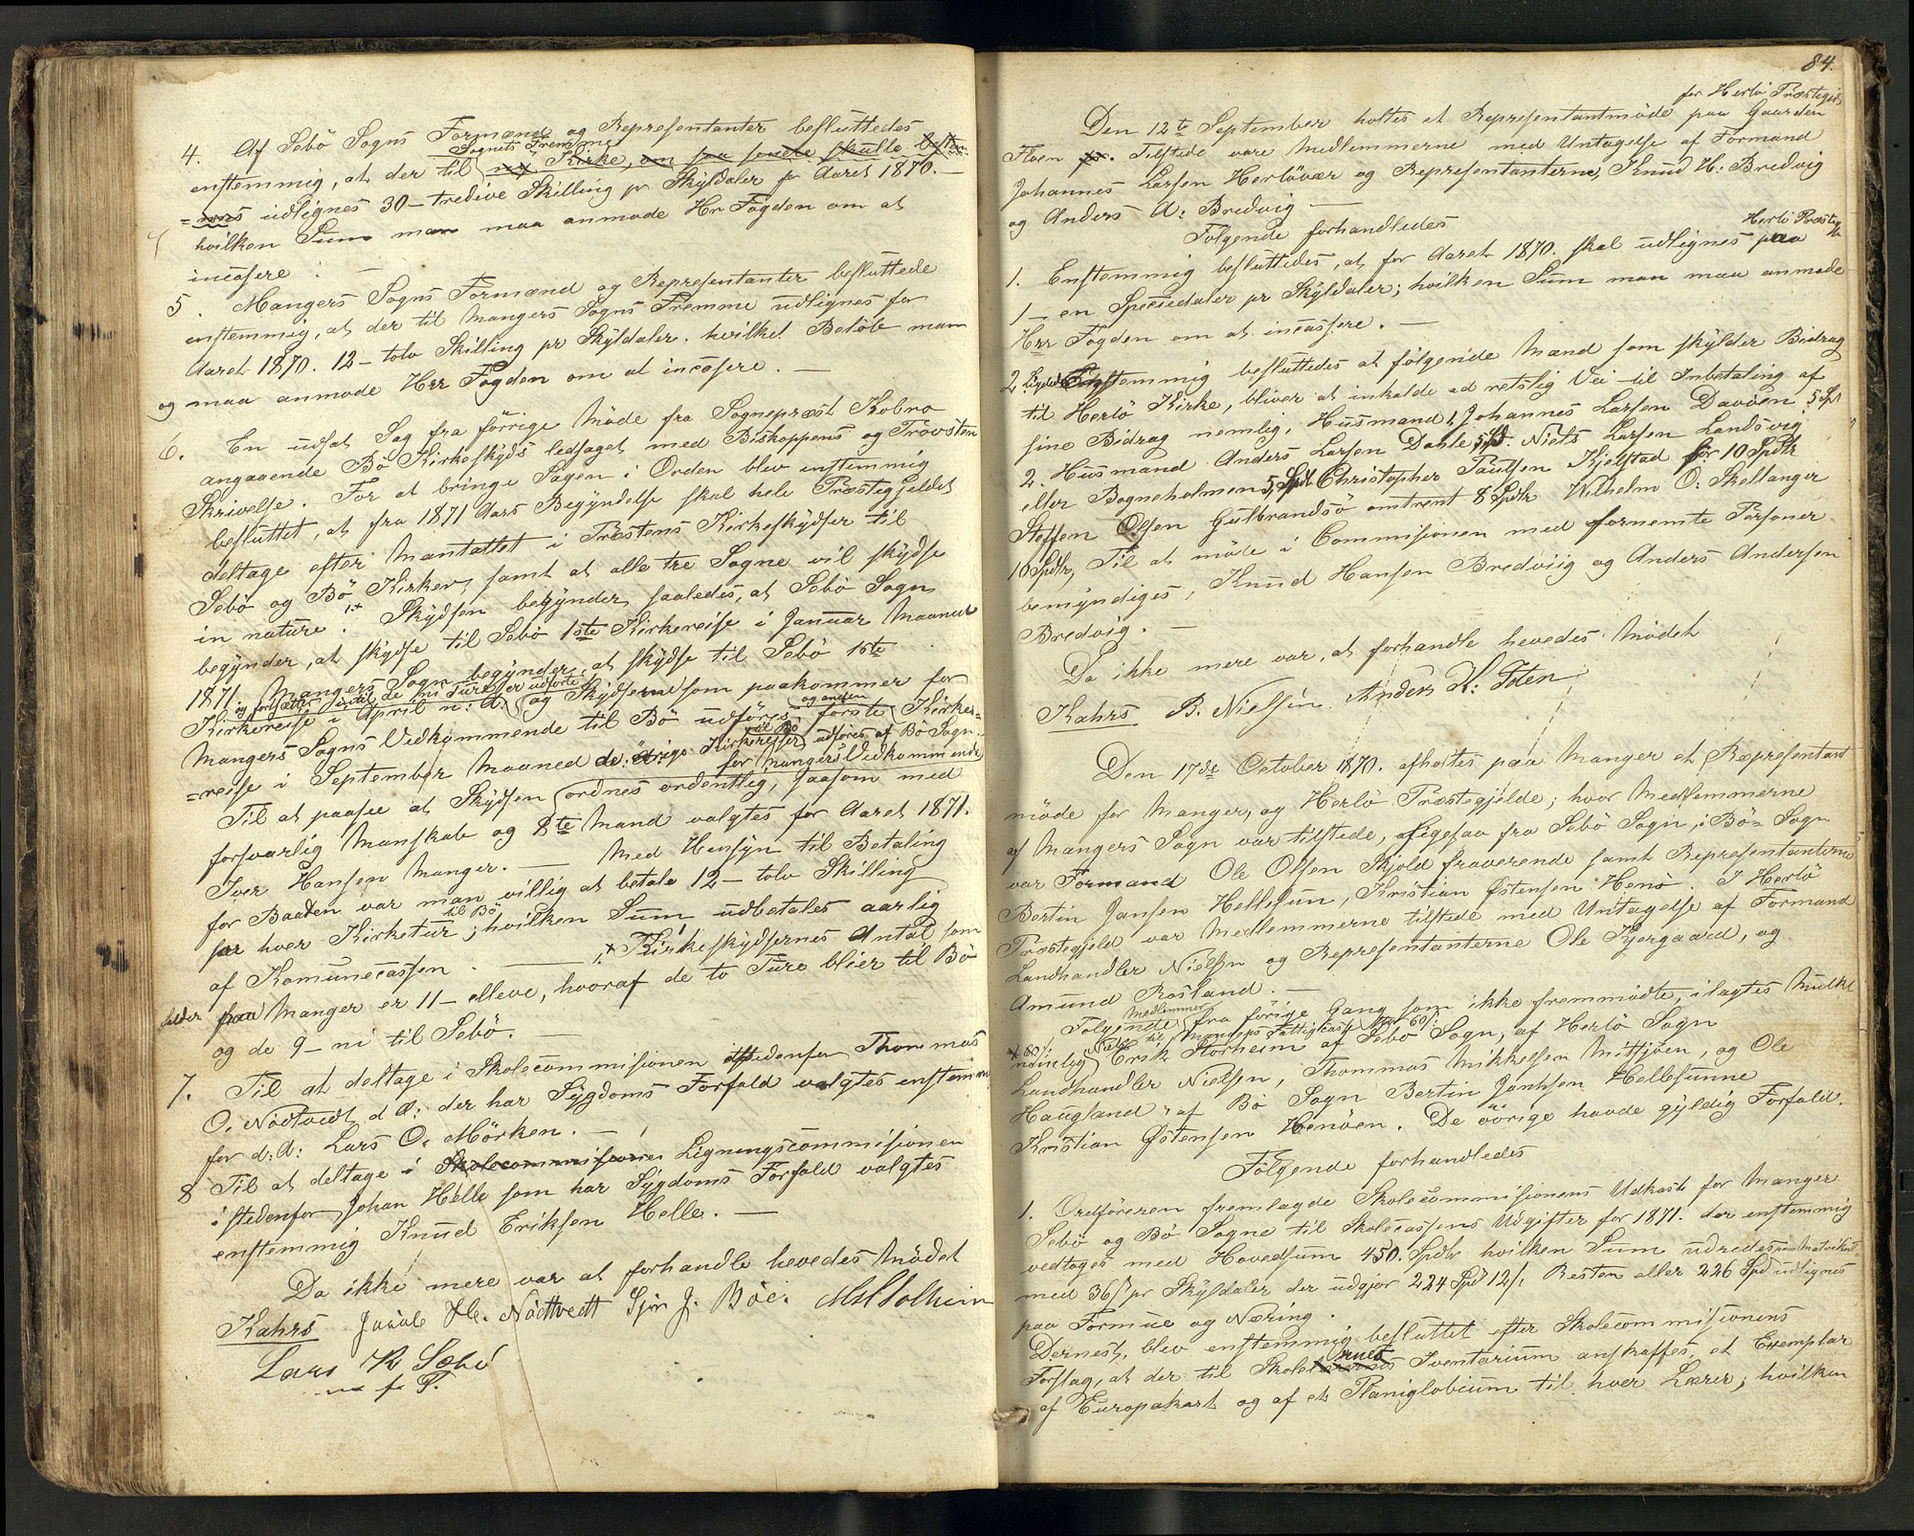 4. Af Sebö Sogns Formænd og Repræsentanter besluttedes
Sognets Fremme
enstemmig, at der til ny Kirke, om saa senere skulle bestem
=mes udlignes 30 - tredive Skilling pr Skyldaler for Aaret 1870. —
hvilken Sum man maa anmode Hr Fogden om at
incasere. —
5. Mangers Sogns Formænd og Repræsentanter besluttede
enstemmig, at der til Mangers Sogns Fremme udlignes for
Aaret 1870. 12 - tolv Skilling pr Skyldaler. hvilket Belöb man
og maa anmode Hrr Fogden om at incasere. —
6. En udsat Sag fra förrige Möde fra Sognepræst Kobro
angaaende Bö Kirkeskyds ledsaget med Biskoppens og Provsten
Skrivelse. For at bringe Sagen i Orden blev enstemmig
besluttet, at fra 1871 Aars Begyndelse skal hele Præstegjeldet
deltage efter Mantallet i Præstens Kirkeskydser til
Sebö og Bö Kirker, samt at alle tre Sogne vil skydse
in nature. Skydsen begynder saaledes, at Sebö Sogn
begynder, at skydse til Sebö 1ste Kirkereise i Januar Maaned
1871. Mangers Sogn begynder, at skydse til Sebö 1ste
og fortsætter indtil de ni Ture er udförte
Kirkereise i April n: A: og Skydserne som paakommer for
og anden
Mangers Sogns Vedkommende til Bö udföres förste Kirke=
til Bö
=reise i September Maaned de övrige Kirkereiser udföres af Bö Sogn
for Mangers Vedkommende
Til at paasee at Skydsen ordnes ordentlig, saasom med
forsvarlig Manskab og 8te Mand valgtes for Aaret 1871.
Iver Hansen Manger. — Med Hensyn til Betaling
for Baaden var man villig at betale 12 - tolv Skilling
til Bö
for hver Kirketur; hvilken Sum udbetales aarlig
af Komunecassen. — Kirkeskydsernes Antal som
falder paa Manger er 11 - elleve, hvoraf de to Ture blier til Bö
og de 9 - ni til Sebö. —
7. Til at deltage i Skolecommisionen istedenfor Thommas
O. Nødtvedt d. A: der har Sygdoms Forfald valgtes enstemmi
for d: A: Lars O. Mörken. —
8 Til at deltage i Skolecommisionen Ligningscommisionen
istedenfor Johan Helle som har Sygdoms Forfald valgtes
enstemmig Knud Eriksen Helle. —
Da ikke mere var at forhandle hevedes Mödet
Kahrs Jacob H. Nödtvedt Sjur J. Böe. M Solheim
Lars K Sæbö
m f P.
84.
for Herlö Præstegjeld
Den 12te September holtes et Repræsentantmöde paa Gaarden
Floen pr. Tilstede vare Medlemmerne med Untagelse af Formand
Johannes Larsen Herlövær og Repræsentanterne, Knud H: Bredvig
og Anders A: Bredvig —
Fölgende forhandledes
Herlö Præstegj
1. Enstemmig besluttedes, at for Aaret 1870. skal udlignes paa
1 - en Speciedaler pr Skyldaler; hvilken Sum man maa anmode
Hrr Fogden om at incassere. —
2 Ligeledes Enstemmig besluttedes at fölgende Mænd som skylder Bidrag
til Herlö Kirke, bliver at inkalde ad retslig Vei til Inbetaling af
sine Bidrag nemlig, Husmand 1, Johannes Larsen Davöen 5 Spd
2. Husmand Anders Larsen Dahle 5 Spd. Niels Larsen Landsvig
eller Bogneholmen 5 Spd Christopher Paulsen Kjelstad for 10 Spdlr
Steffen Olsen Gulbrandsö omtrent 8 Spdlr Wilhelm O: Skellanger
10 Spdlr, Til at möde i Commisionen med fornemte Persöner
bemyndiges, Knud Hansen Bredviig og Anders Andersen
Bredvig. —
Da ikke mere var, at forhandle hevedes Mödet
Kahrs B. Nielsen Anders H: Iden
Den 17de October 1870. afholtes paa Manger et Repræsentant
möde for Manger, og Herlö Præstegjelde; hvor Medlemmerne
af Mangers Sogn var tilstede, ligesaa fra Sebö Sogn, i Bö Sogn
var Formand Ole Olsen Skjold fraværende samt Repræsentanterne
Bertin Jansen Hellesun, Kristian Østensen Henö. I Herlö
Præstegjeld var Medlemmerne tilstede med Untagelse af Formand
Landhandler Nielsen og Repræsentanterne Ole Kjergaard, og
Amund Rosland. —
Medlemmer
Fölgende fra förige Gang som ikke fremmödte, ilagtes Mulkt
nemlig Erik Storheim af Sebö Sogn, af Herlö Sogn
Landhandler Nielsen, Thommas Mikkelsen Mittjöen, og Ole
Haugland, af Bö Sogn Bertin Janssen Hellesunne
Kristian Østensen Henöen. De övrige havde gyldig Forfald.
Fölgende forhandledes
1. Ordföreren fremlagde Skolecommisionens Udkast for Manger
Sebö og Bö Sogne til Skolecassens Udgifter for 1871. der enstemmig
vedtoges med Hovedsum 450. Spdlr hvilken Sum udredes paa Matrikul
med 36 s pr Skyldaler der udgjør 224 Spd 12 s. Resten eller 226 Spd udlignes
paa Formue og Næring.
Dernest, blev enstemmig besluttet efter Skolecommisionens
Forslag, at der til Skolernes Inventarium anskaffes, et Exemplar
af Europakart og af et Planiglobium til hver Lærer; hvilken